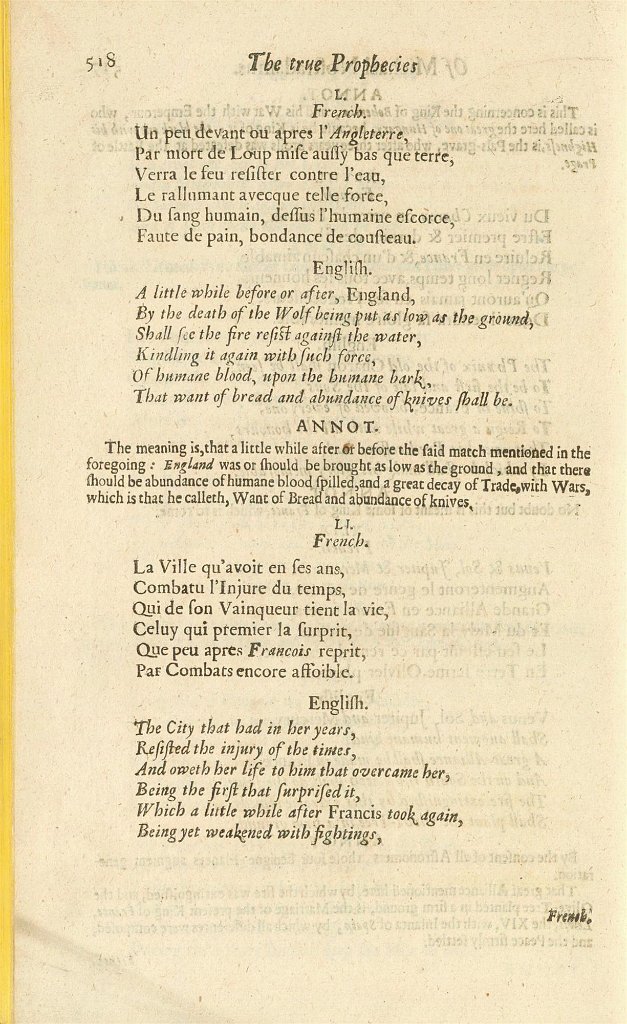 518 The true Prophecies
L.
French.
Un peu devant ou apres l'Angleterre,
Par mort de Loup miſe auſſy bas que terre,
Verra le feu reſiſter contre l'eau,
Le rallumant avecque telle force,
Du ſang humain, deſſus l'humaine eſcorce,
Faute de pain, bondance de couſteau.
Engliſh.
A little while before or after, England,
By the death of the Wolf being put as low as the ground,
Shall ſee the fire reſiſt againſt the water,
Kindling it again with ſuch force,
Of humane blood, upon the humane bark,
That want of bread and abundance of knives ſhall be.
ANNOT.
The meaning is, that a little while after or before the ſaid match mentioned in the
foregoing: England was or ſhould be brought as low as the ground, and that there
ſhould be abundance of humane blood ſpilled, and a great decay of Trade, with Wars,
which is that he calleth, Want of Bread and abundance of knives,
LI.
French.
La Ville qu'avoit en ſes ans,
Combatu l'Injure du temps,
Qui de ſon Vainqueur tient la vie,
Celuy qui premier la ſurprit,
Que peu apres Francois reprit,
Par Combats encore affoible.
Engliſh.
The City that had in her years,
Reſiſted the injury of the times,
And oweth her life to him that overcame her,
Being the firſt that ſurpriſed it,
Which a little while after Francis took again,
Being yet weakened with fightings,
French.